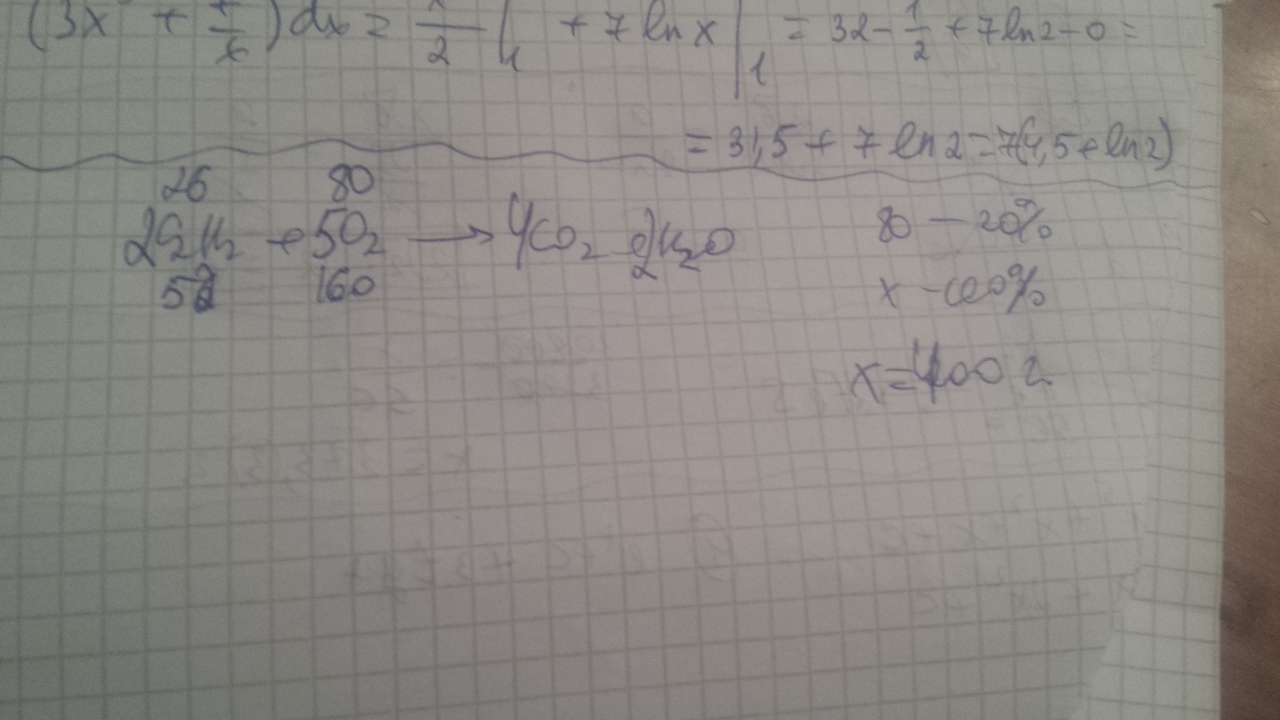 (3x + 7/x)dx = x/2 |1 + 7 ln x |1 = 32 - 1/2 + 7 ln 2 - 0 =
= 31,5 + 7 ln 2 = 7(4,5 + ln 2)
26 80
2C2H2 + 5O2 → 4CO2 + 2H2O
52 160
80 — 20%
x — 100%
x = 400 г